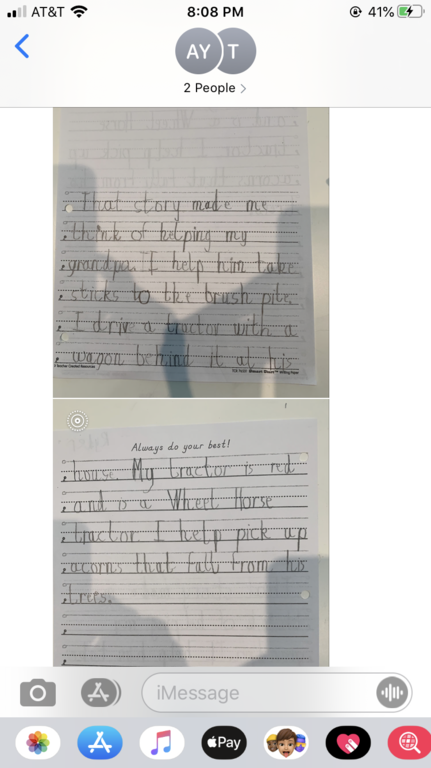 AT&T
8:08 PM
41%
AY
T
2 People >
That story made me
think of helping my
grandpa. I help him take
sticks to the brush pile.
I drive a tractor with a
wagon behind it at his
Always do your best!
house. My tractor is red
and is a Wheel Horse
tractor. I help pick up
acorns that fall from his
trees.
iMessage
Pay